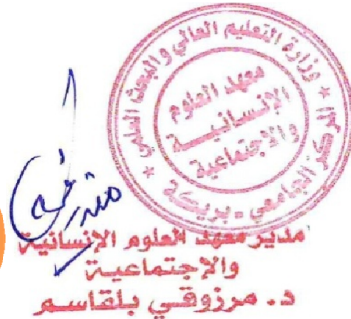 وزارة التعليم العالي والبحث العلمي
المركز الجامعي - بريكة
معهد العلوم
الإنسانية
والاجتماعية
مدير معهد العلوم الإنسانية
والإجتماعية
د. مرزوقي بلقاسم